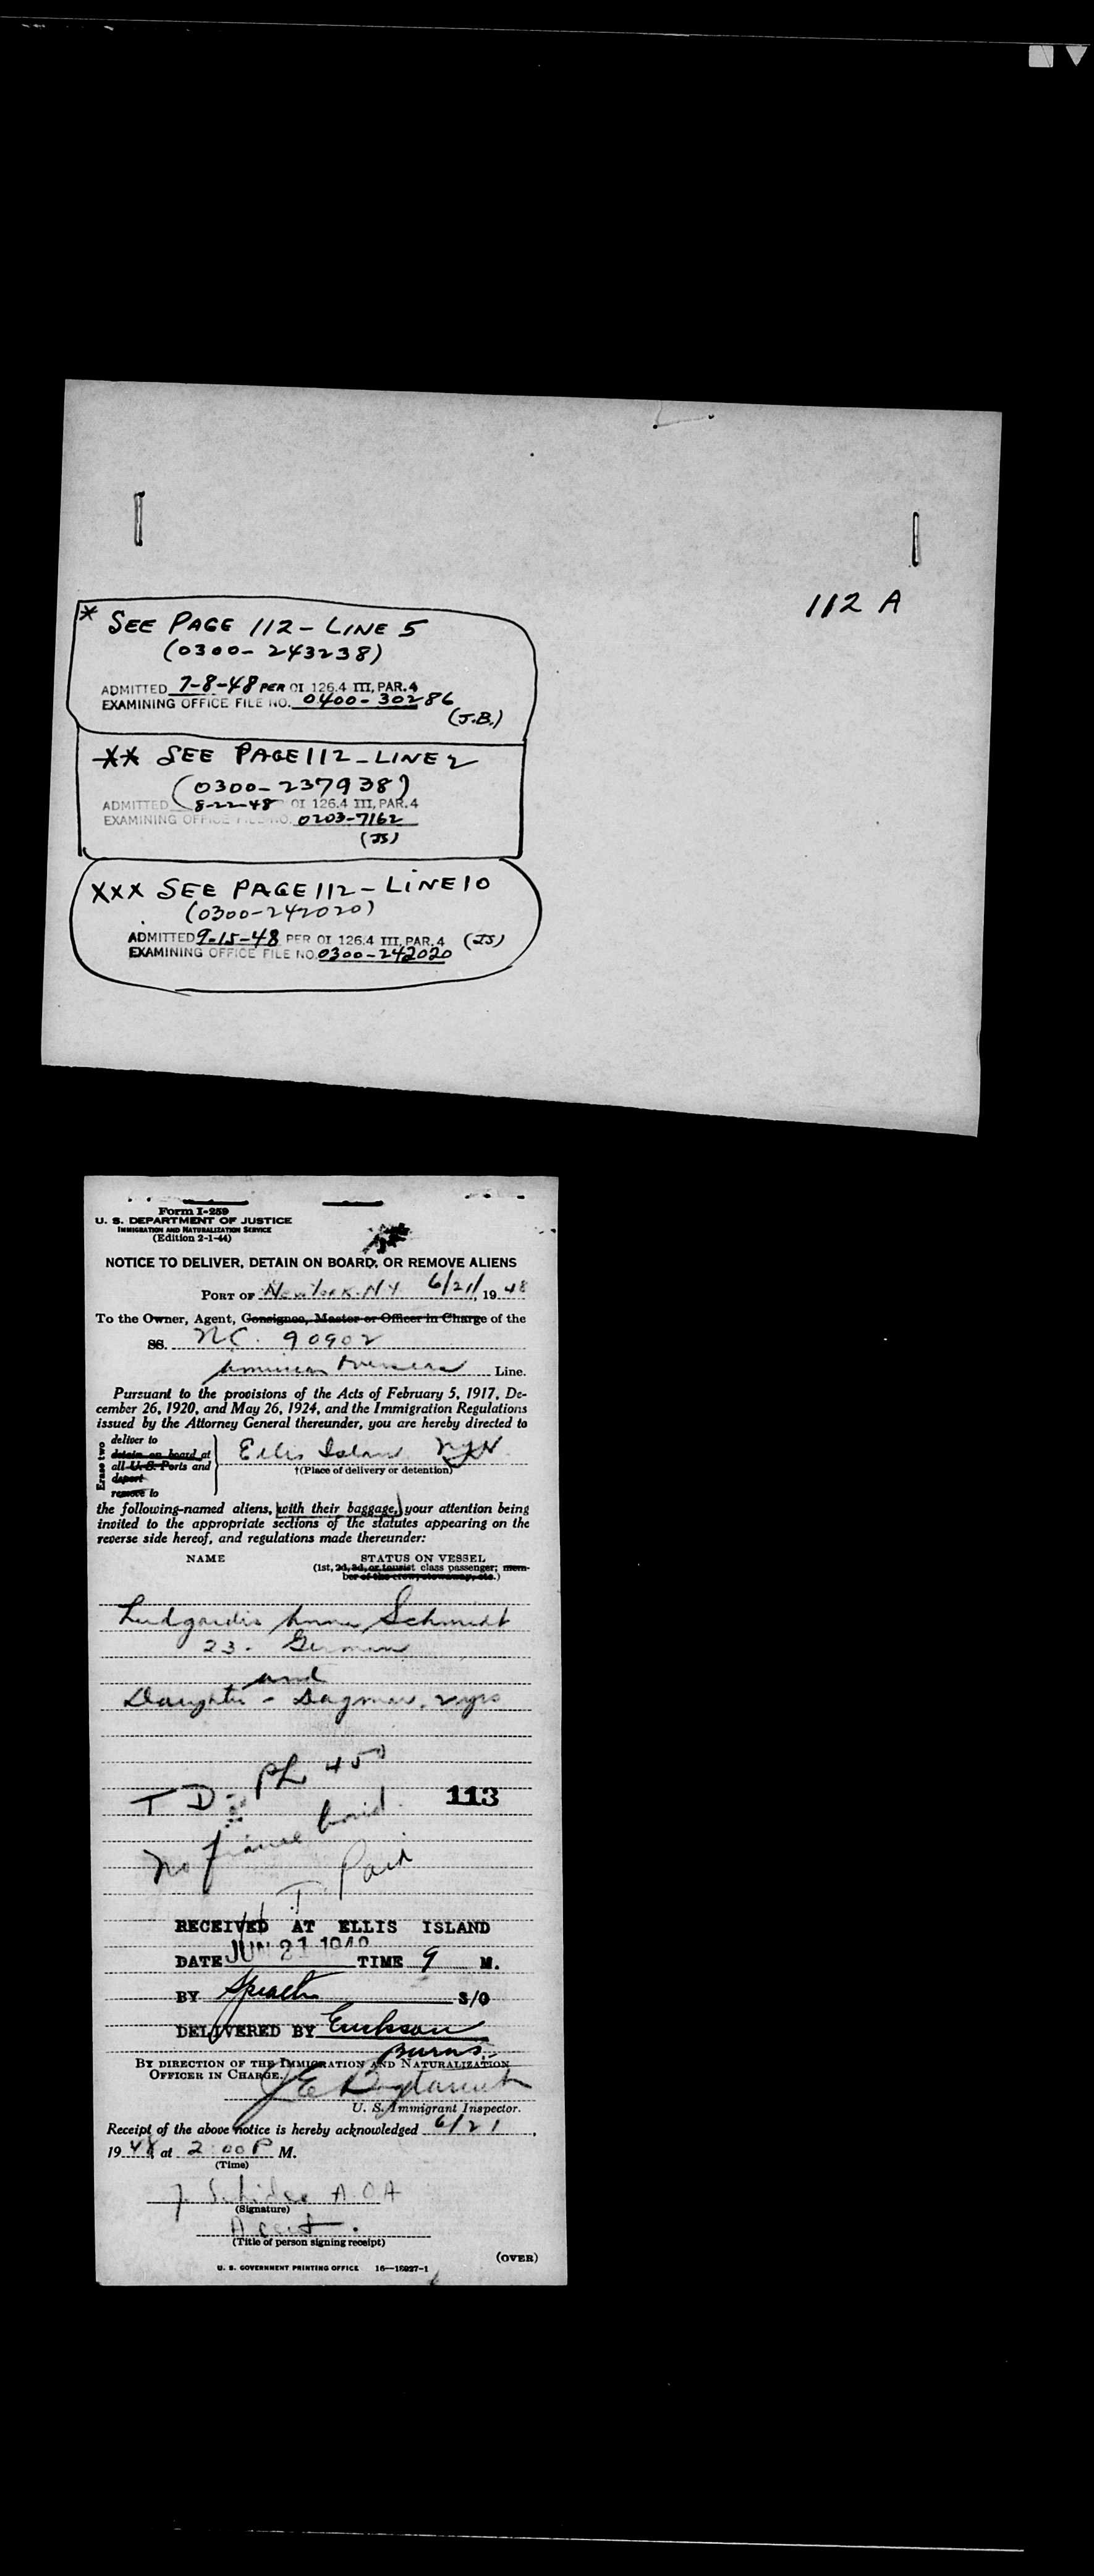 112 A
* SEE PAGE 112 - LINE 5
(0300-243238)
ADMITTED 7-8-48 PER OI 126.4 III, PAR. 4
EXAMINING OFFICE FILE NO. 0400-30286
(J.B.)
** SEE PAGE 112 - LINE 2
(0300-237938)
ADMITTED 8-22-48 OI 126.4 III, PAR. 4
EXAMINING OFFICE FILE NO. 0203-7162
(JS)
XXX SEE PAGE 112 - LINE 10
(0300-242020)
ADMITTED 9-15-48 PER OI 126.4 III, PAR. 4 (JS)
EXAMINING OFFICE FILE NO. 0300-242020
Form I-259
U. S. DEPARTMENT OF JUSTICE
IMMIGRATION AND NATURALIZATION SERVICE
(Edition 2-1-44)
NOTICE TO DELIVER, DETAIN ON BOARD, OR REMOVE ALIENS
PORT OF New York. NY 6/21/, 1948
To the Owner, Agent, Consignee, Master or Officer in Charge of the
SS. NC. 90902
American Overseas Line.
Pursuant to the provisions of the Acts of February 5, 1917, De-
cember 26, 1920, and May 26, 1924, and the Immigration Regulations
issued by the Attorney General thereunder, you are hereby directed to
Erase two
deliver to
detain on board at
all U. S. Ports and
deport
remove to
Ellis Island
†(Place of delivery or detention)
the following-named aliens, (with their baggage,) your attention being
invited to the appropriate sections of the statutes appearing on the
reverse side hereof, and regulations made thereunder:
NAME STATUS ON VESSEL
(1st, 2d, 3d, or tourist class passenger; mem-
ber of the crew, stowaway, etc.)
Ludgardis Anna Schmidt
23. German
and
Daughter - Dagmar. 2 yrs
T D.
113
No fiance bond
Paid
RECEIVED AT ELLIS ISLAND
DATE JUN 21 1948 TIME 9 M.
BY S/O
DELIVERED BY Erickson
Burns
BY DIRECTION OF THE IMMIGRATION AND NATURALIZATION
OFFICER IN CHARGE.
U. S. Immigrant Inspector.
Receipt of the above notice is hereby acknowledged 6/21,
1948, at 2:00 P M.
(Time)
A.O.A
(Signature)
(Title of person signing receipt)
(OVER)
U. S. GOVERNMENT PRINTING OFFICE 16-18927-1